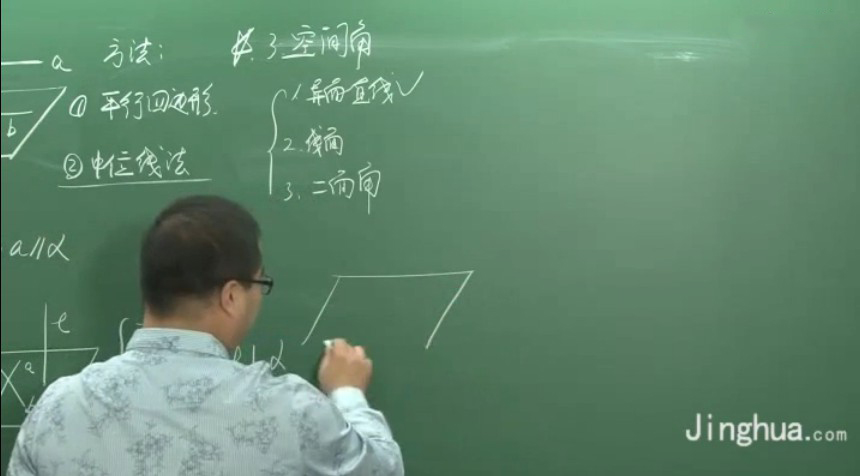 a
方法：
共.3.空间角
b
① 平行四边形.
1.异面直线✓
② 中位线法
2.线面
3.二面角
a∥α
ℓ
a
α
Jinghua.com